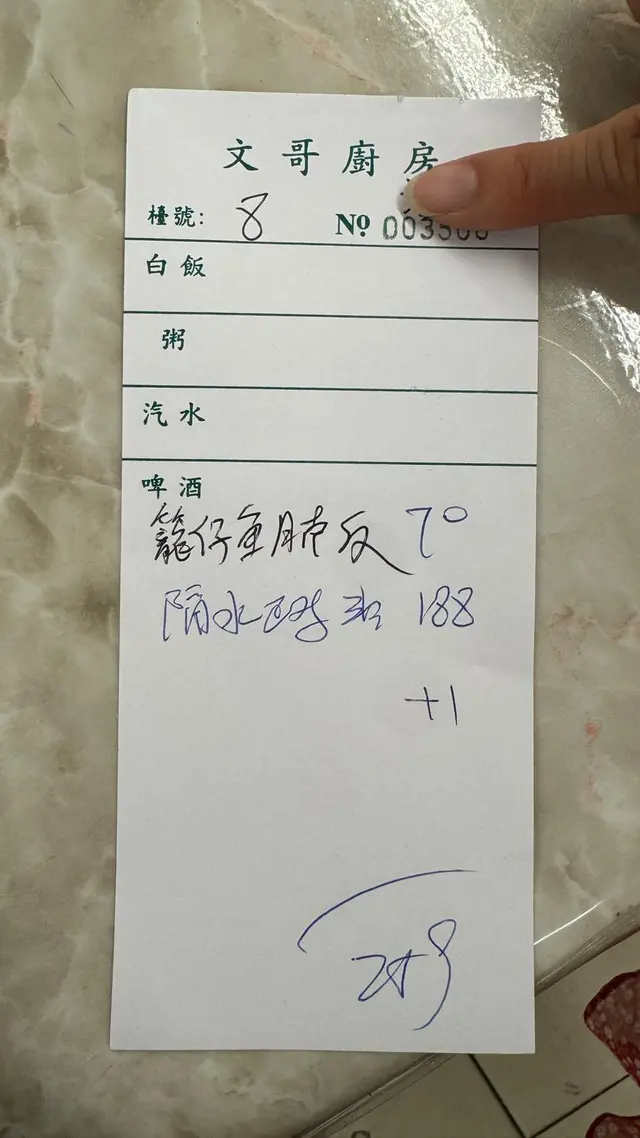 文哥廚房
檯號: 8 Nº 003500
白飯
粥
汽水
啤酒
籠仔魚肺反 70
隔水 188
+1
259